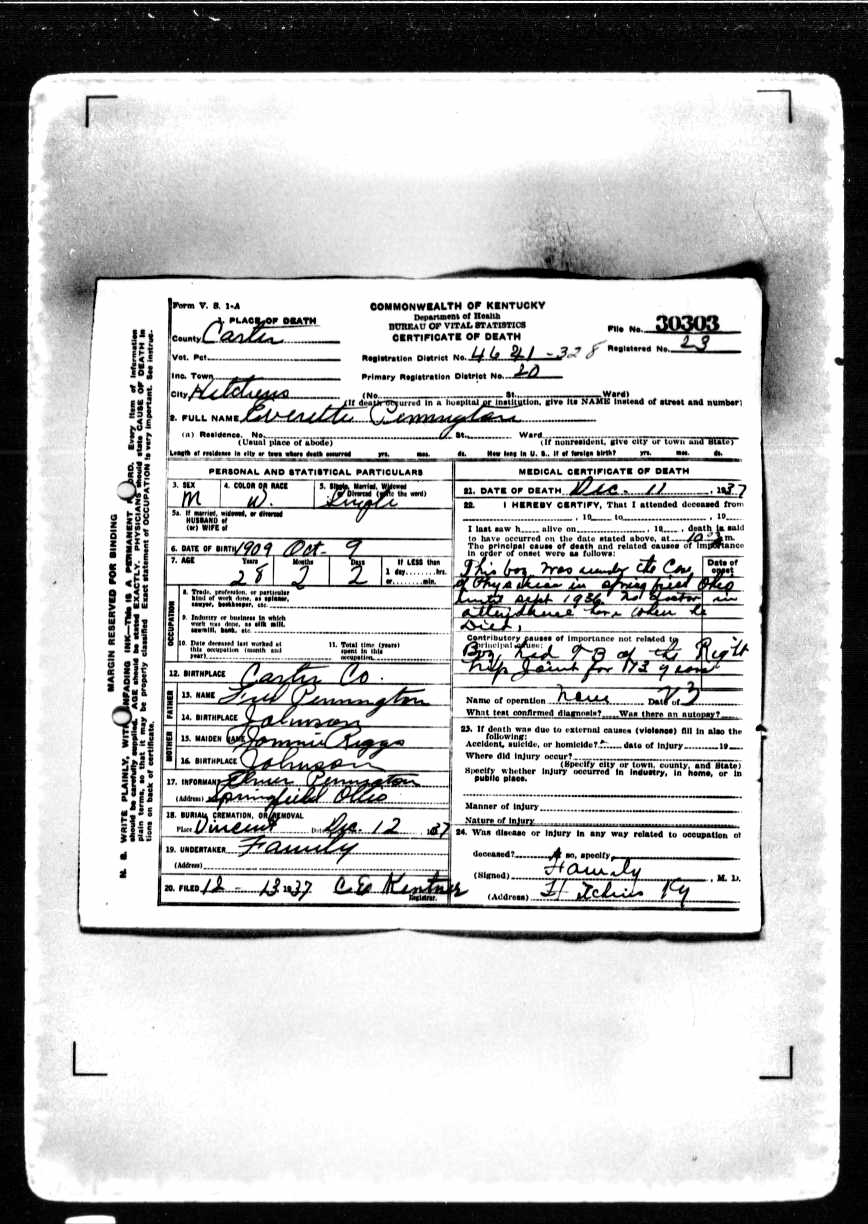 Form V. S. 1-A
COMMONWEALTH OF KENTUCKY
Department of Health
BUREAU OF VITAL STATISTICS
CERTIFICATE OF DEATH
File No. 30303
Registered No. 23
1. PLACE OF DEATH
County Carter
Vot. Pct.
Registration District No. 4641-328
Inc. Town
Primary Registration District No. 20
City Hitchins (No. St. Ward)
(If death occurred in a hospital or institution, give its NAME instead of street and number)
2. FULL NAME Everette Pennington
(a) Residence. No. St., Ward
(Usual place of abode) (If nonresident, give city or town and State)
Length of residence in city or town where death occurred yrs. mos. ds. How long in U. S., if of foreign birth? yrs. mos. ds.
PERSONAL AND STATISTICAL PARTICULARS
3. SEX M
4. COLOR OR RACE W.
5. Single, Married, Widowed or Divorced (write the word) Single
5a. If married, widowed, or divorced
HUSBAND of
(or) WIFE of
6. DATE OF BIRTH 1909 Oct- 9
7. AGE Years 28 Months 2 Days 2 If LESS than 1 day, hrs. or min.
OCCUPATION
8. Trade, profession, or particular
kind of work done, as spinner,
sawyer, bookkeeper, etc.
9. Industry or business in which
work was done, as silk mill,
sawmill, bank, etc.
10. Date deceased last worked at
this occupation (month and
year)
11. Total time (years)
spent in this
occupation
12. BIRTHPLACE Carter Co.
FATHER
13. NAME Fred Pennington
14. BIRTHPLACE Johnson
MOTHER
15. MAIDEN NAME Jonnie Riggs
16. BIRTHPLACE Johnson
17. INFORMANT Elmer Pennington
(Address) Springfield Ohio
18. BURIAL, CREMATION, OR REMOVAL
Place Vincent Date Dec. 12 1937
19. UNDERTAKER Family
(Address)
20. FILED 12 - 13 1937 C E Kentner
Registrar.
MEDICAL CERTIFICATE OF DEATH
21. DATE OF DEATH Dec. 11, 1937
22. I HEREBY CERTIFY, That I attended deceased from
, 19 to , 19
I last saw h alive on , 19 , death is said
to have occurred on the date stated above, at 10 m.
The principal cause of death and related causes of importance
in order of onset were as follows:
Date of onset
This boy was under the Care
of Physician in Springfield Ohio
until Sept 1936 no doctor in
attendance here when he
Died.
Contributory causes of importance not related to
principal cause:
Boy had TB of the Right
hip Joint for 173 years
Name of operation none Date of 23
What test confirmed diagnosis? Was there an autopsy?
23. If death was due to external causes (violence) fill in also the
following:
Accident, suicide, or homicide? date of injury 19
Where did injury occur?
(Specify city or town, county, and State)
Specify whether injury occurred in industry, in home, or in
public place.
Manner of injury
Nature of injury
24. Was disease or injury in any way related to occupation of
deceased? If so, specify
(Signed) Family , M. D.
(Address) Hitchins Ky
MARGIN RESERVED FOR BINDING
N. B. WRITE PLAINLY, WITH UNFADING INK—This is A PERMANENT RECORD. Every item of information
should be carefully supplied. AGE should be stated EXACTLY. PHYSICIANS should state CAUSE OF DEATH in
plain terms, so that it may be properly classified. Exact statement of OCCUPATION is very important. See instruc-
tions on back of certificate.